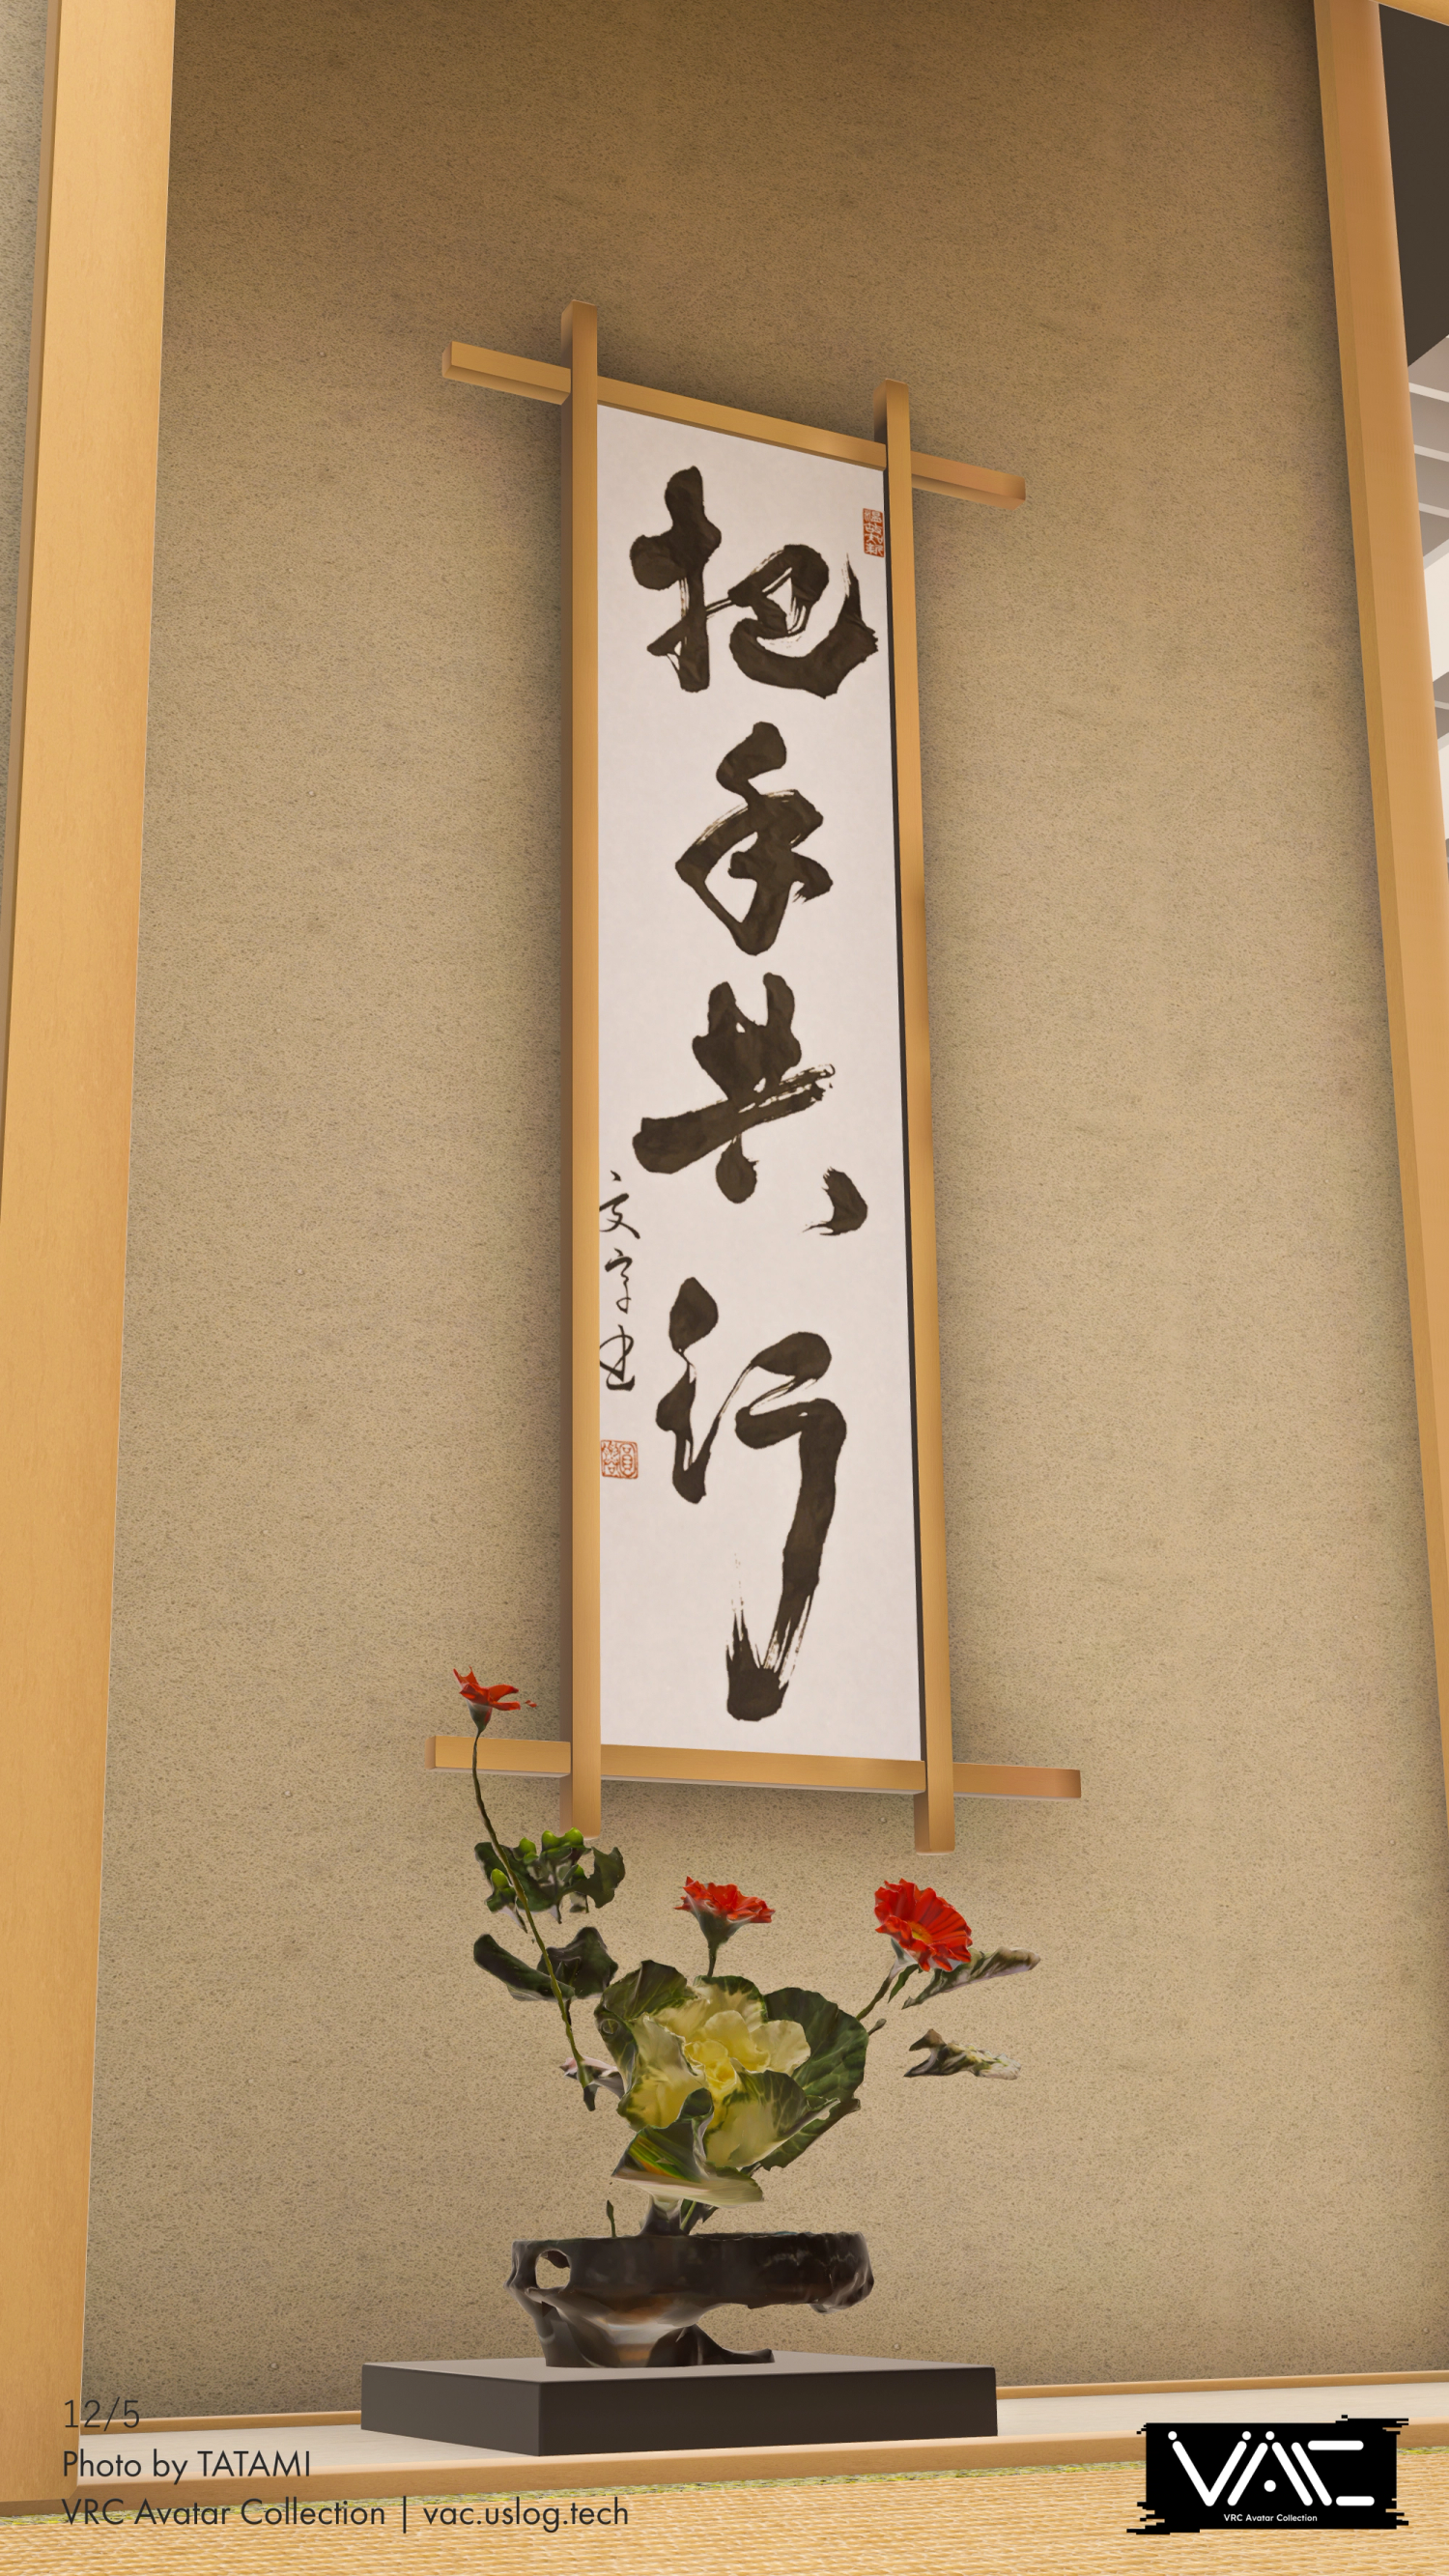 把手共行
文字書
12/5
Photo by TATAMI
VRC Avatar Collection | vac.uslog.tech
VAC
VRC Avatar Collection